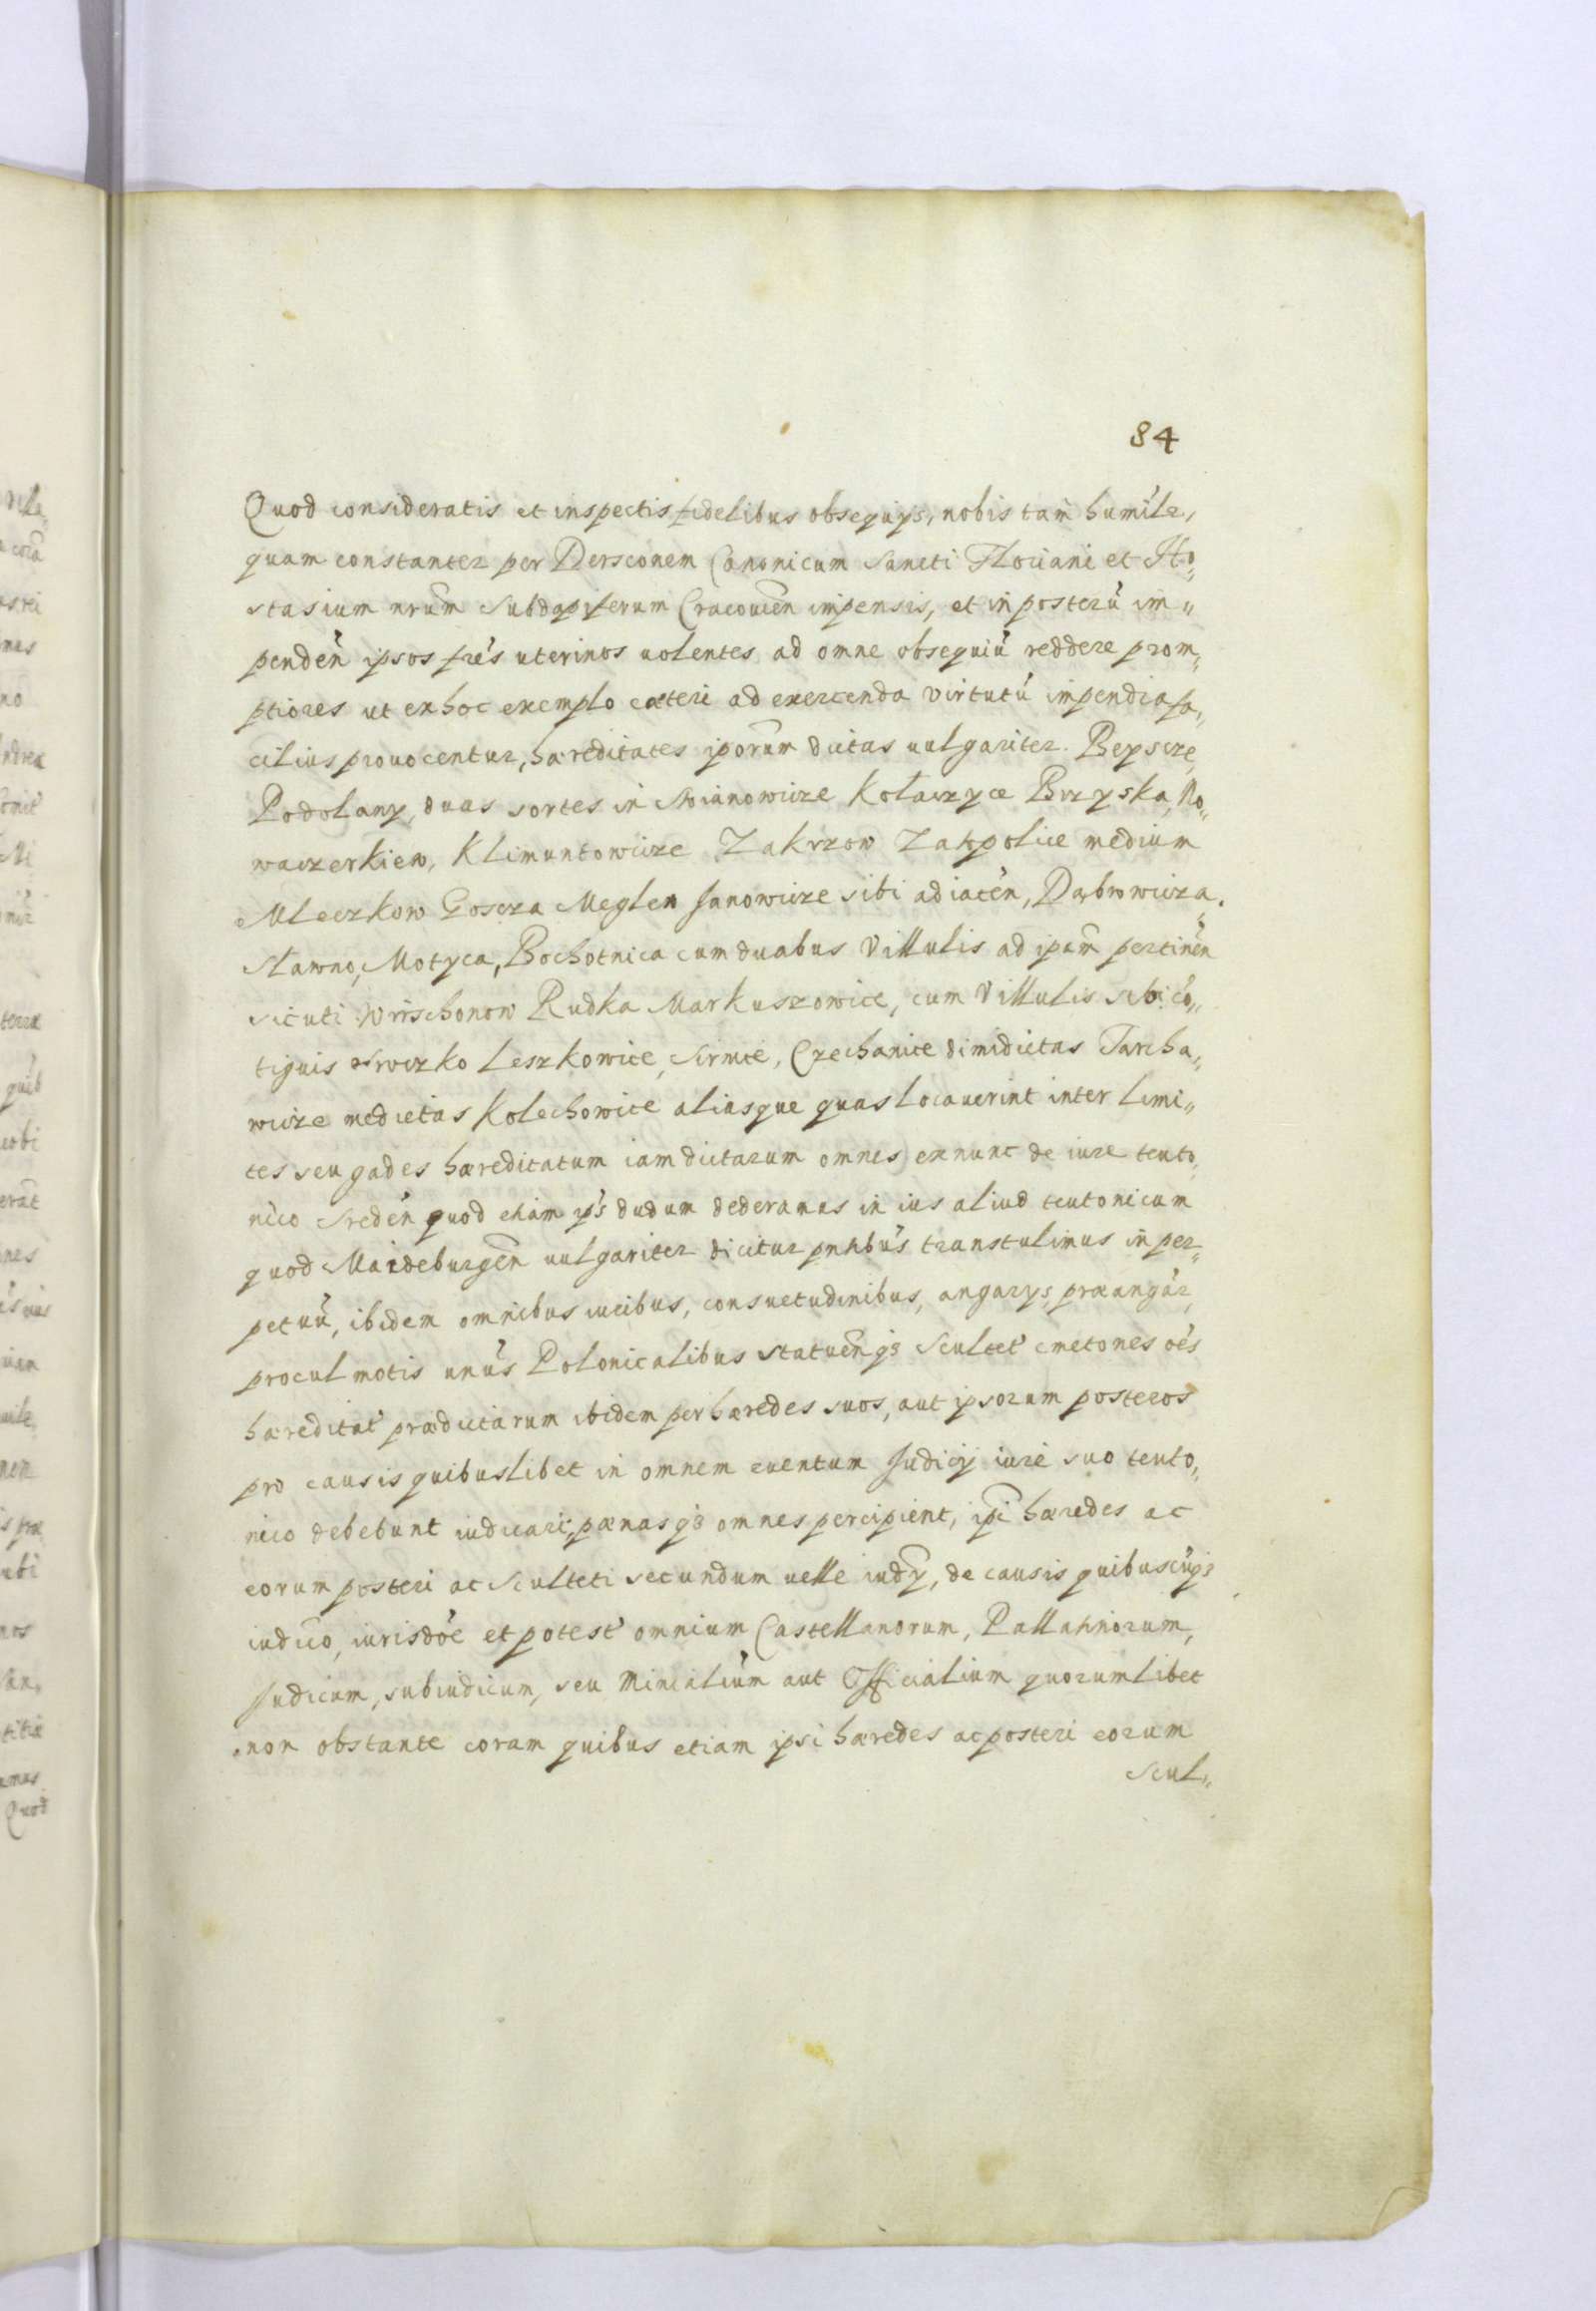 84
Quod consideratis et inspectis fidelibus obsequijs, nobis tam humile,
quam constanter per Dersconem Canonicum Sancti Floriani et Ho„
stasium nrum Subdapiferum Cracouien impensis, et in posterū im„
penden̄ ipsos frēs uterinos uolentes ad omne obsequiū reddere prom„
ptiores ut ex hoc exemplo cæteri ad exercenda virtutū impendia fa„
cilius prouocentur, hæreditates iporum dictas uulgariter. Beyscze,
Podolany, duas sortes in Swianowicze Kołaczyce Brzyska, No„
waczerkiew, Klimuntowicze Zakrzow Zakpolice medium
Mleczkow Goscza Meglen Janowicze sibi adiacēn, Dąbrowicza.
Sławno, Motyca, Bochotnica cum duabus Villulis ad ipam pertinēn
sicuti Wrischonow Rudka Markuszowice, cum Villulis sibi cō„
tiguis Leszkowice, Sirnice, Czechanice dimidietas Tarcha„
wicze medietas Kolechowice aliasque quas locauerint inter limi„
tes seu gades hæreditatum iam dictarum omnes ex nunc de iure teuto„
nico Sredēn quod etiam ijs dudum dederamus in ius aliud teutonicum
quod Maideburgen uulgariter dicitur pntibus transtulimus in per„
petuū, ibidem omnibus iuribus, consuetudinibus, angarys, præangar,
procul motis unus Polonicalibus statuenqs Scultet cmetones oēs
hæreditat prædictarum ibidem per hæredes suos, aut ipsorum posteros
pro causis quibuslibet in omnem euentum Judicij iure suo teuto„
nico debebunt iudicari, pænasqs omnes percipient, ipi hæredes ac
eorum posteri ac Sculteti secundum uelle iudy, de causis quibuscuqs
iudico, iurisdoē et potest omnium Castellanorum, Pallatinorum,
Judicum, subiudicum, seu Minialium aut Officialium quorumlibet
non obstante coram quibus etiam ipsi hæredes ac posteri eorum
Scul„